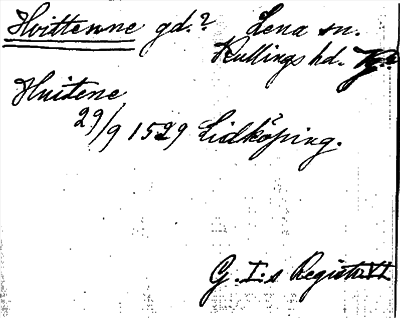 Hvittenne gd.? Lena sn.
Kullings hd. Vg.
Huitene
29/9 1529 Lidköping.
G. I:s Registr. VI